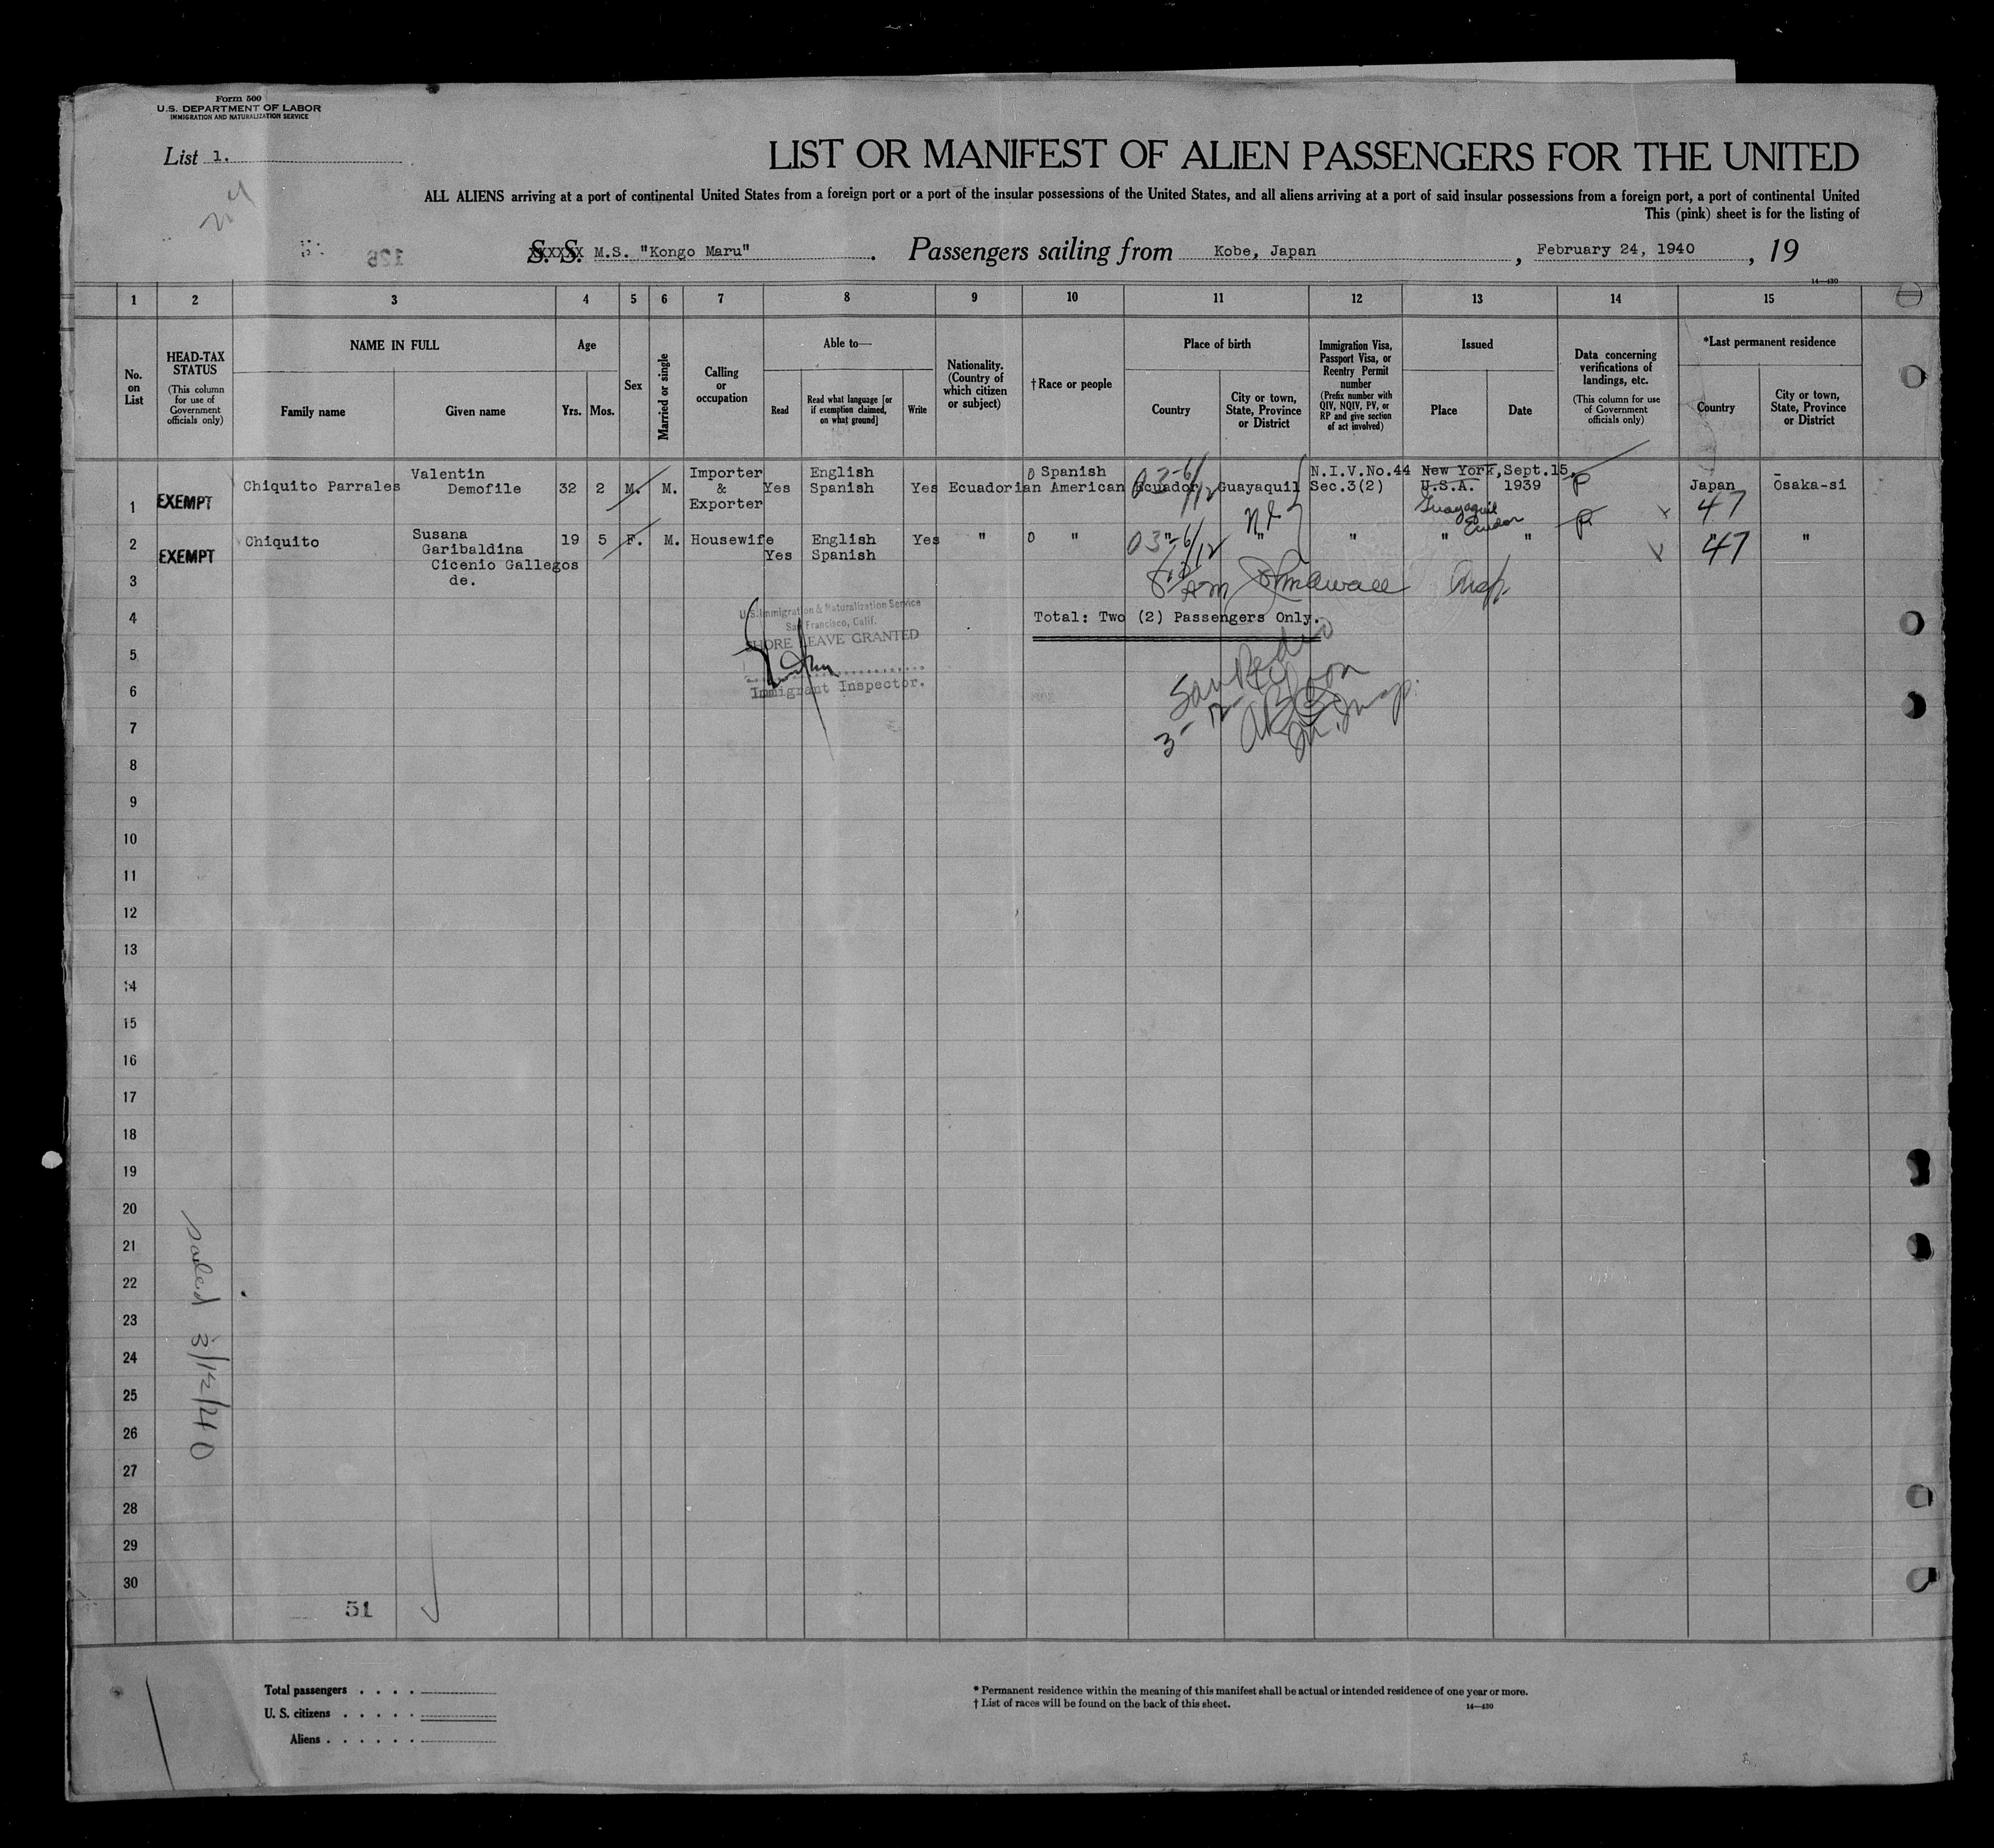 Form 500
U.S. DEPARTMENT OF LABOR
IMMIGRATION AND NATURALIZATION SERVICE
List 1.
LIST OR MANIFEST OF ALIEN PASSENGERS FOR THE UNITED
ALL ALIENS arriving at a port of continental United States from a foreign port or a port of the insular possessions of the United States, and all aliens arriving at a port of said insular possessions from a foreign port, a port of continental United
This (pink) sheet is for the listing of
S. S. M.S. "Kongo Maru". Passengers sailing from Kobe, Japan, February 24, 1940, 19
14—430
1 2 3 4 5 6 7 8 9 10 11 12 13 14 15
No. on List
HEAD-TAX STATUS
(This column for use of Government officials only)
NAME IN FULL
Family name Given name
Age
Yrs. Mos.
Sex
Married or single
Calling or occupation
Able to—
Read
Read what language [or if exemption claimed, on what ground]
Write
Nationality. (Country of which citizen or subject)
†Race or people
Place of birth
Country
City or town, State, Province or District
Immigration Visa, Passport Visa, or Reentry Permit number
(Prefix number with QIV, NQIV, PV, or RP and give section of act involved)
Issued
Place Date
Data concerning verifications of landings, etc.
(This column for use of Government officials only)
*Last permanent residence
Country
City or town, State, Province or District
1 EXEMPT Chiquito Parrales Valentin Demofile 32 2 M. M. Importer & Exporter Yes English Spanish Yes Ecuadorian Spanish American Ecuador Guayaquil N.I.V.No.44 Sec.3(2) New York, U.S.A. Sept.15, 1939 P Japan Ōsaka-si
03-6/12
Guayaquil
Ecuador
47
2 EXEMPT Chiquito Susana Garibaldina Cicenio Gallegos de. 19 5 F. M. Housewife Yes English Spanish Yes " " " " " " " P " "
03-6/12
47
3
4
U.S. Immigration & Naturalization Service
San Francisco, Calif.
SHORE LEAVE GRANTED
Immigrant Inspector.
Total: Two (2) Passengers Only.
San Pedro
3-12
5
6
7
8
9
10
11
12
13
14
15
16
17
18
19
20
21
22
23
24
25
26
27
28
29
30
sailed 3/12/40
51
Total passengers . . . .
U. S. citizens . . . . .
Aliens . . . . . .
* Permanent residence within the meaning of this manifest shall be actual or intended residence of one year or more.
† List of races will be found on the back of this sheet.
14—430